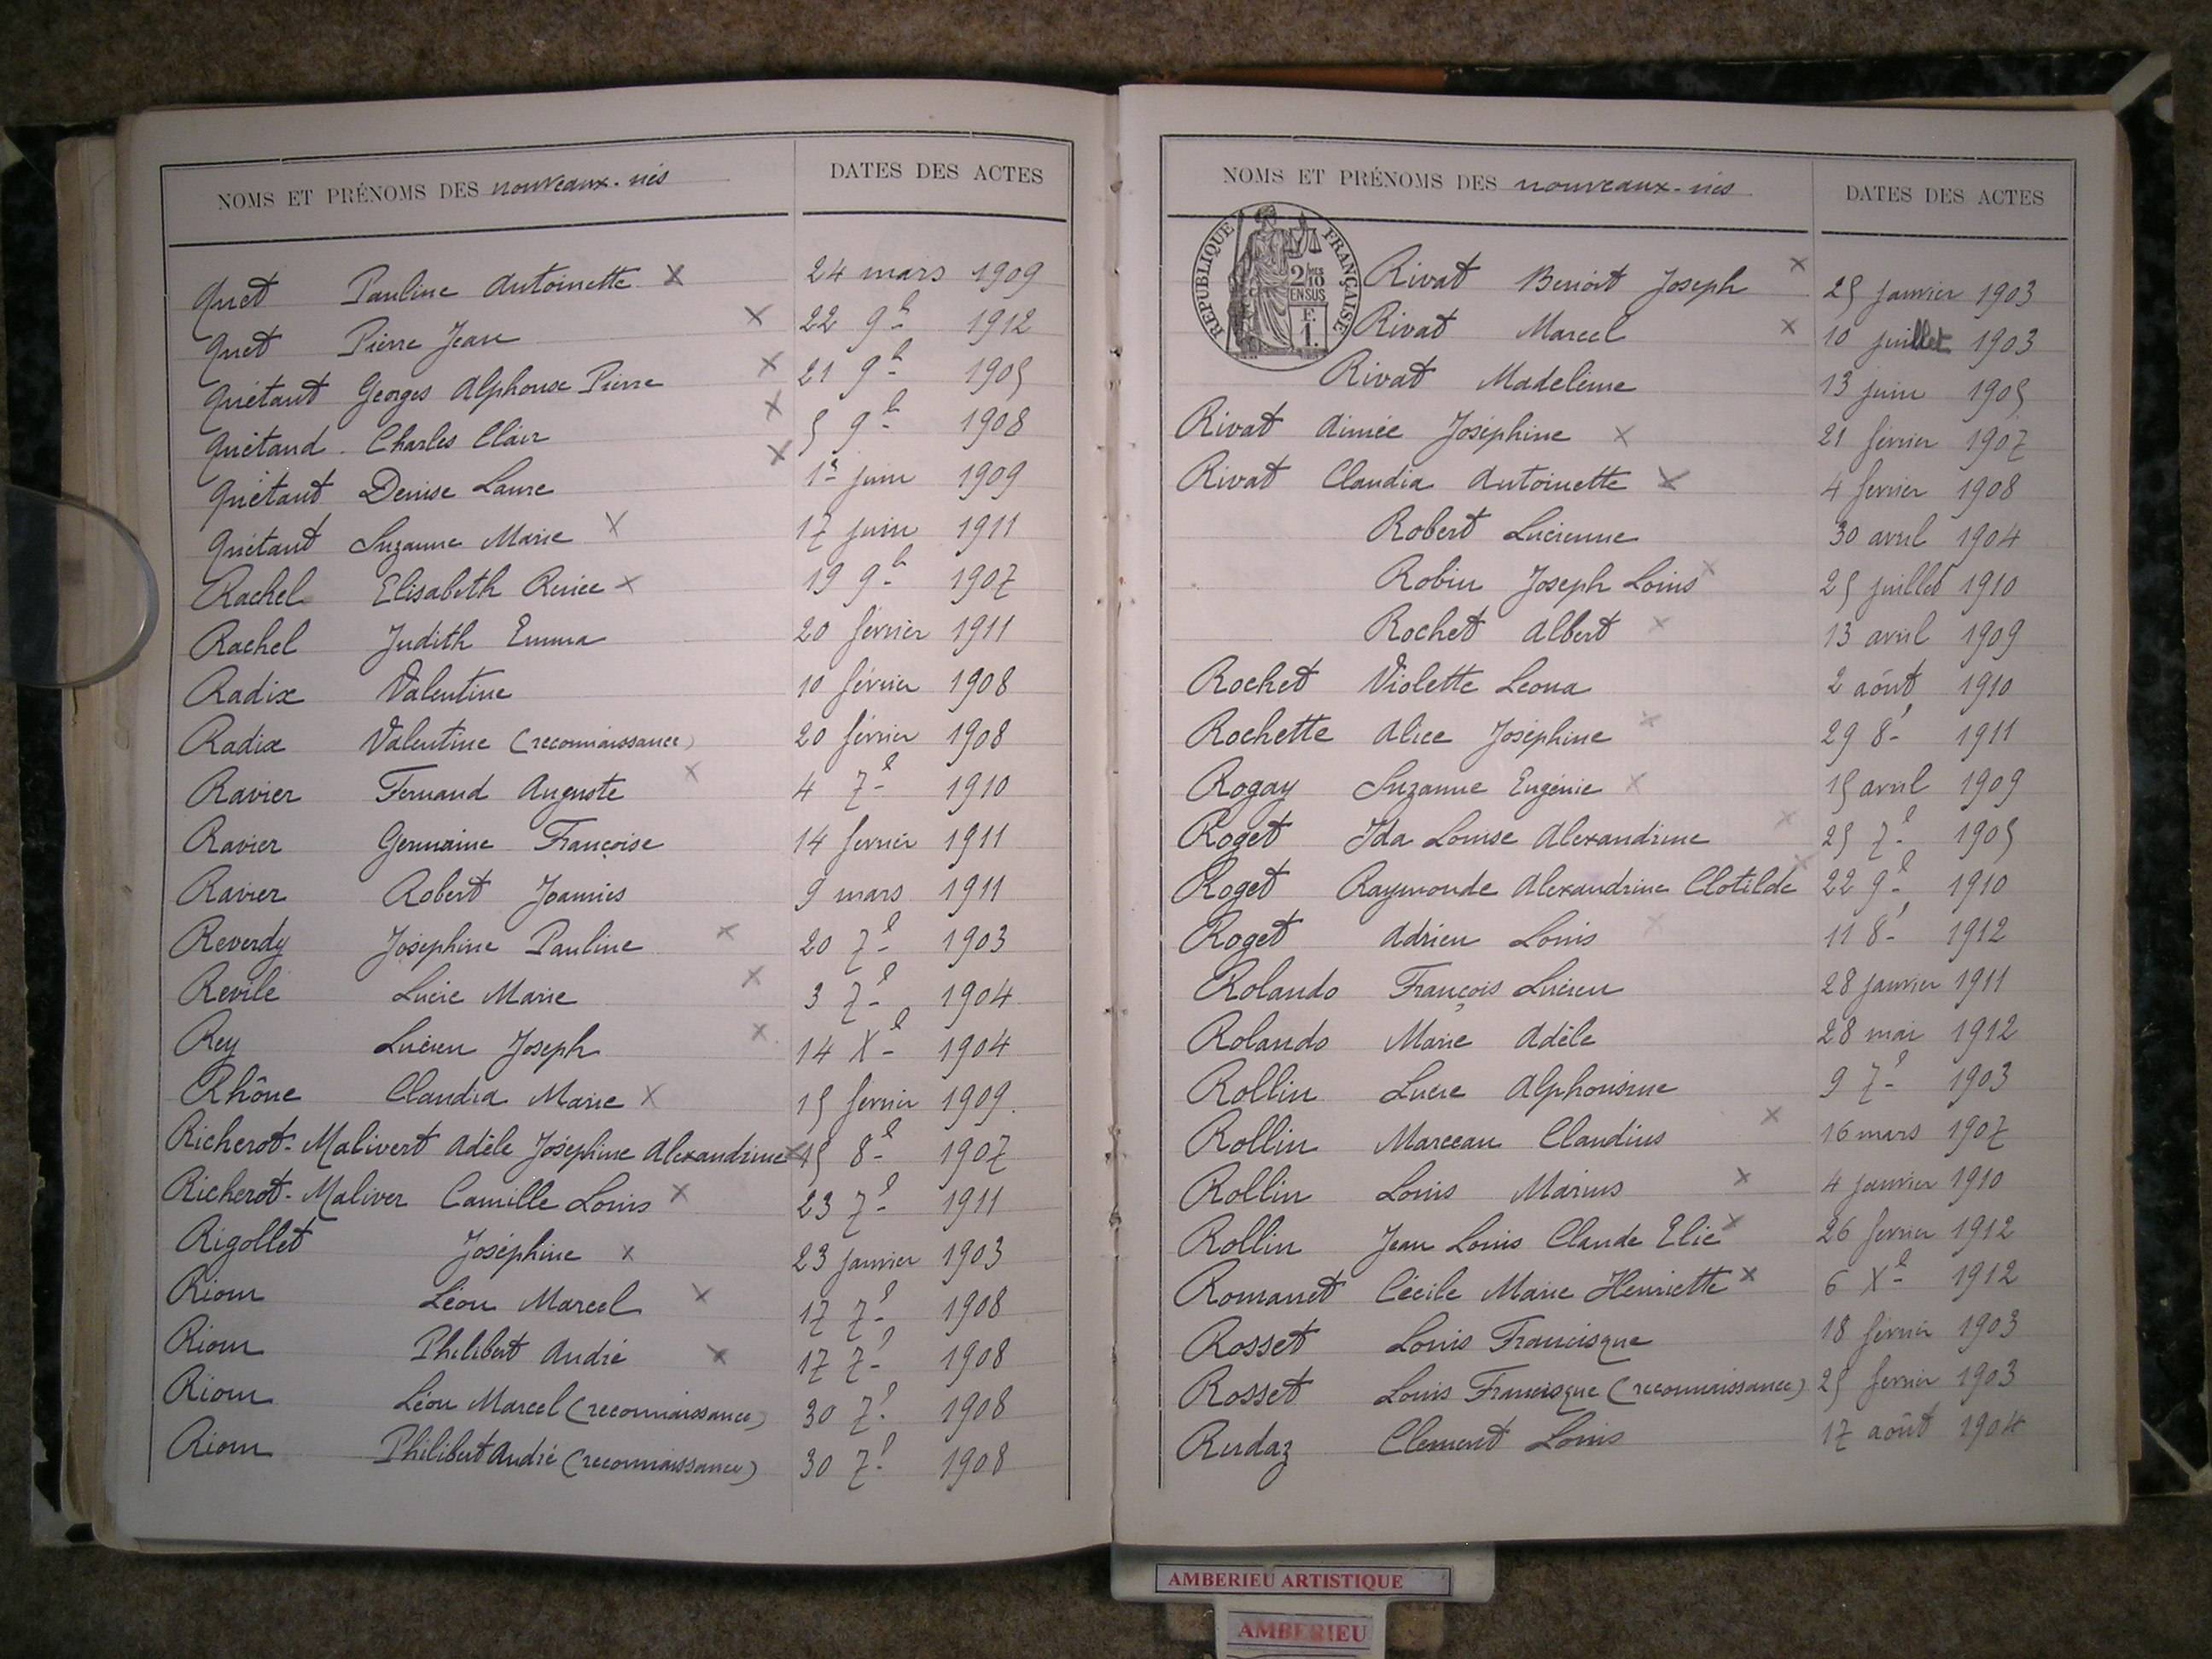 NOMS ET PRÉNOMS DES nouveaux-nés DATES DES ACTES
Quet Pauline Antoinette X 24 mars 1909
Quet Pierre Jean X 22 9b 1912
Quétant Georges Alphonse Pierre X 21 9b 1905
Quétand Charles Clair X 5 9b 1908
Quétant Denise Laure X 1er juin 1909
Quétant Suzanne Marie X 17 juin 1911
Rachel Elisabeth Renée X 19 9b 1907
Rachel Judith Emma 20 février 1911
Radix Valentine 10 février 1908
Radix Valentine (reconnaissance) 20 février 1908
Ravier Fernand Auguste X 4 7e 1910
Ravier Germaine Françoise 14 fevrier 1911
Ravier Robert Joannès 9 mars 1911
Reverdy Joséphine Pauline X 20 7e 1903
Revile Lucie Marie X 3 7e 1904
Rey Lucien Joseph X 14 Xe 1904
Rhône Claudia Marie X 15 fevrier 1909
Richerot-Malivert Adèle Joséphine Alexandrine X 15 8e 1907
Richerot-Maliver Camille Louis X 23 7e 1911
Rigollet Joséphine X 23 janvier 1903
Riom Léon Marcel X 17 7e 1908
Riom Philibert André X 17 7e 1908
Riom Léon Marcel (reconnaissance) 30 7e 1908
Riom Philibert André (reconnaissance) 30 7e 1908
NOMS ET PRÉNOMS DES nouveaux-nés DATES DES ACTES
RÉPUBLIQUE FRANÇAISE
2/10 MES
EN SUS
F.
1.
Rivat Benoit Joseph X 25 janvier 1903
Rivat Marcel X 10 juillet 1903
Rivat Madeleine 13 juin 1905
Rivat Aimée Joséphine X 21 février 1907
Rivat Claudia Antoinette X 4 fevrier 1908
Robert Lucienne 30 avril 1904
Robin Joseph Louis X 25 juillet 1910
Rochet Albert X 13 avril 1909
Rochet Violette Leona 2 août 1910
Rochette Alice Joséphine X 29 8e 1911
Rogay Suzanne Eugénie X 15 avril 1909
Roget Ida Louise Alexandrine X 25 7e 1905
Roget Raymonde Alexandrine Clotilde X 22 9e 1910
Roget Adrien Louis X 11 8e 1912
Rolando François Lucien 28 janvier 1911
Rolando Marie Adèle 28 mai 1912
Rollin Lucie Alphonsine 9 7e 1903
Rollin Marceau Claudius X 16 mars 1907
Rollin Louis Marius X 4 janvier 1910
Rollin Jean Louis Claude Elie X 26 fevrier 1912
Romanet Cécile Marie Henriette X 6 Xe 1912
Rosset Louis Francisque 18 février 1903
Rosset Louis Francisque (reconnaissance) 25 fevrier 1903
Rudaz Clement Louis 17 août 1904
AMBERIEU ARTISTIQUE
AMBERIEU